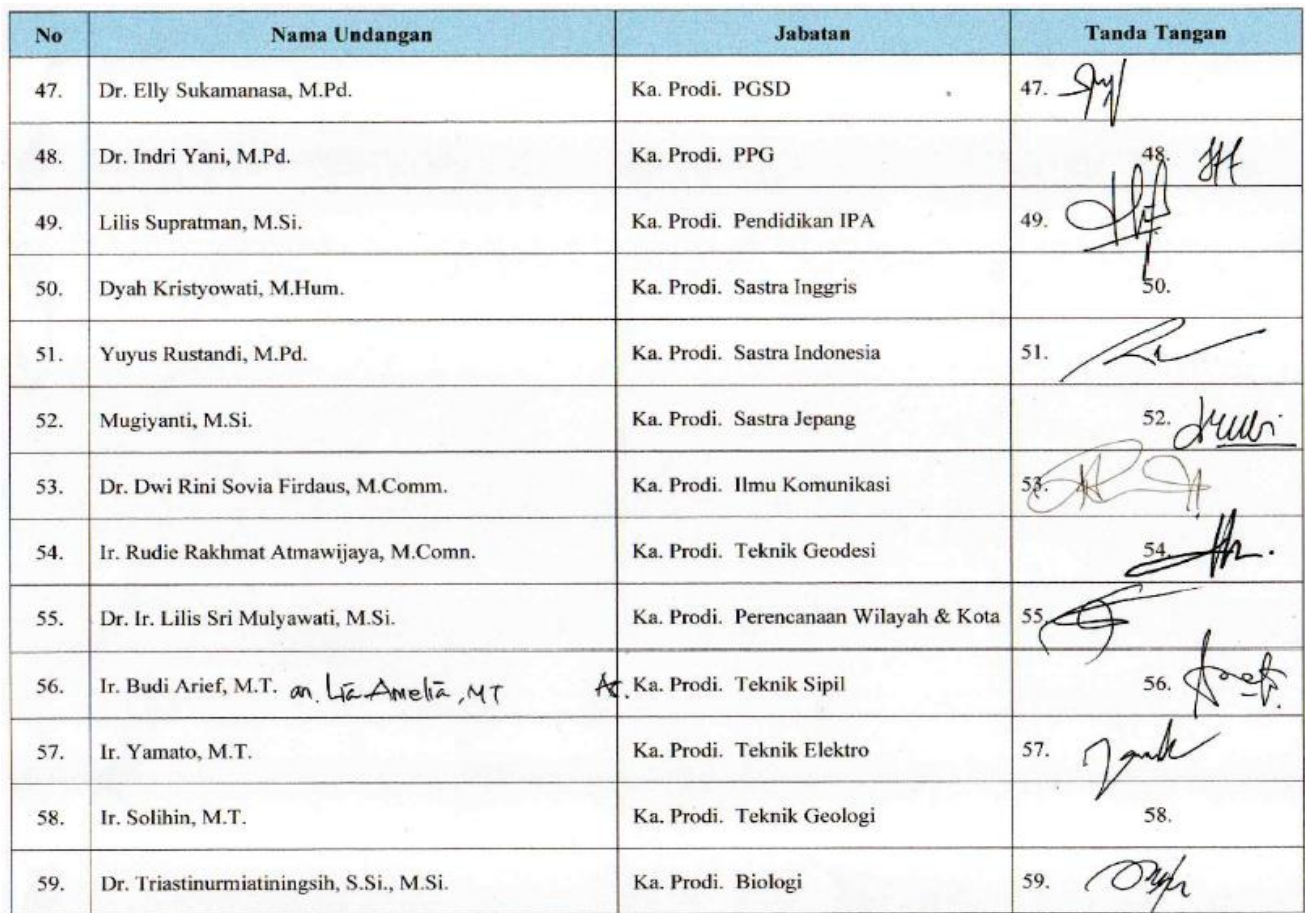 No Nama Undangan Jabatan Tanda Tangan
47. Dr. Elly Sukamanasa, M.Pd. Ka. Prodi. PGSD 47.
48. Dr. Indri Yani, M.Pd. Ka. Prodi. PPG 48.
49. Lilis Supratman, M.Si. Ka. Prodi. Pendidikan IPA 49.
50. Dyah Kristyowati, M.Hum. Ka. Prodi. Sastra Inggris 50.
51. Yuyus Rustandi, M.Pd. Ka. Prodi. Sastra Indonesia 51.
52. Mugiyanti, M.Si. Ka. Prodi. Sastra Jepang 52.
53. Dr. Dwi Rini Sovia Firdaus, M.Comm. Ka. Prodi. Ilmu Komunikasi 53.
54. Ir. Rudie Rakhmat Atmawijaya, M.Comn. Ka. Prodi. Teknik Geodesi 54.
55. Dr. Ir. Lilis Sri Mulyawati, M.Si. Ka. Prodi. Perencanaan Wilayah & Kota 55.
56. Ir. Budi Arief, M.T. an. Lia Amelia, MT Ka. Prodi. Teknik Sipil 56.
57. Ir. Yamato, M.T. Ka. Prodi. Teknik Elektro 57.
58. Ir. Solihin, M.T. Ka. Prodi. Teknik Geologi 58.
59. Dr. Triastinurmiatiningsih, S.Si., M.Si. Ka. Prodi. Biologi 59.